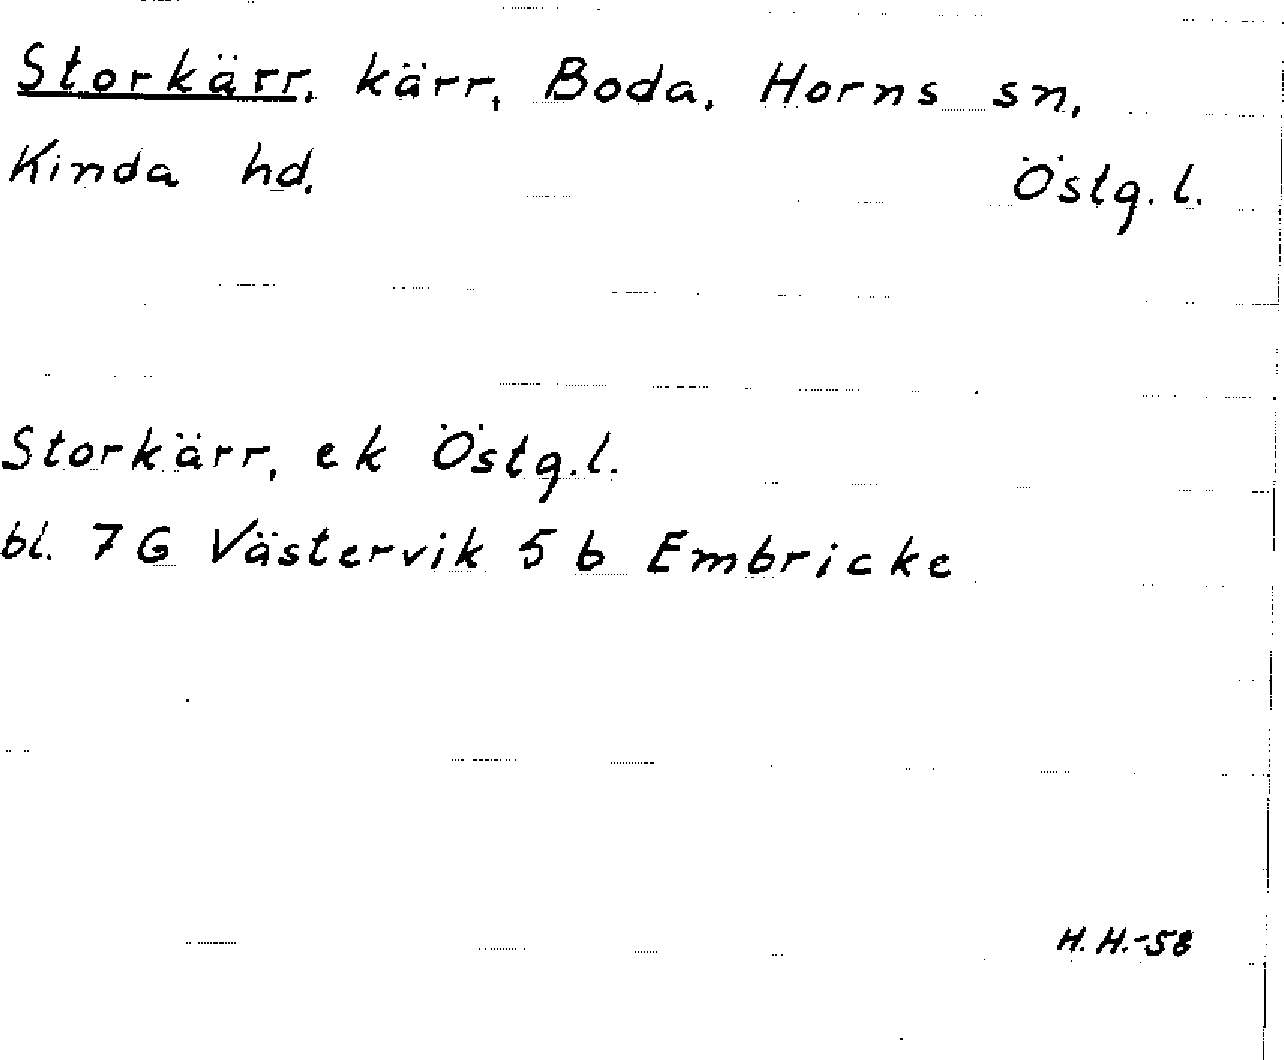 Storkärr, kärr, Boda, Horns sn,
Kinda hd. Östg. l.
Storkärr, ek Östg. l.
bl. 7 G Västervik 5 b Embricke
H. H.-58